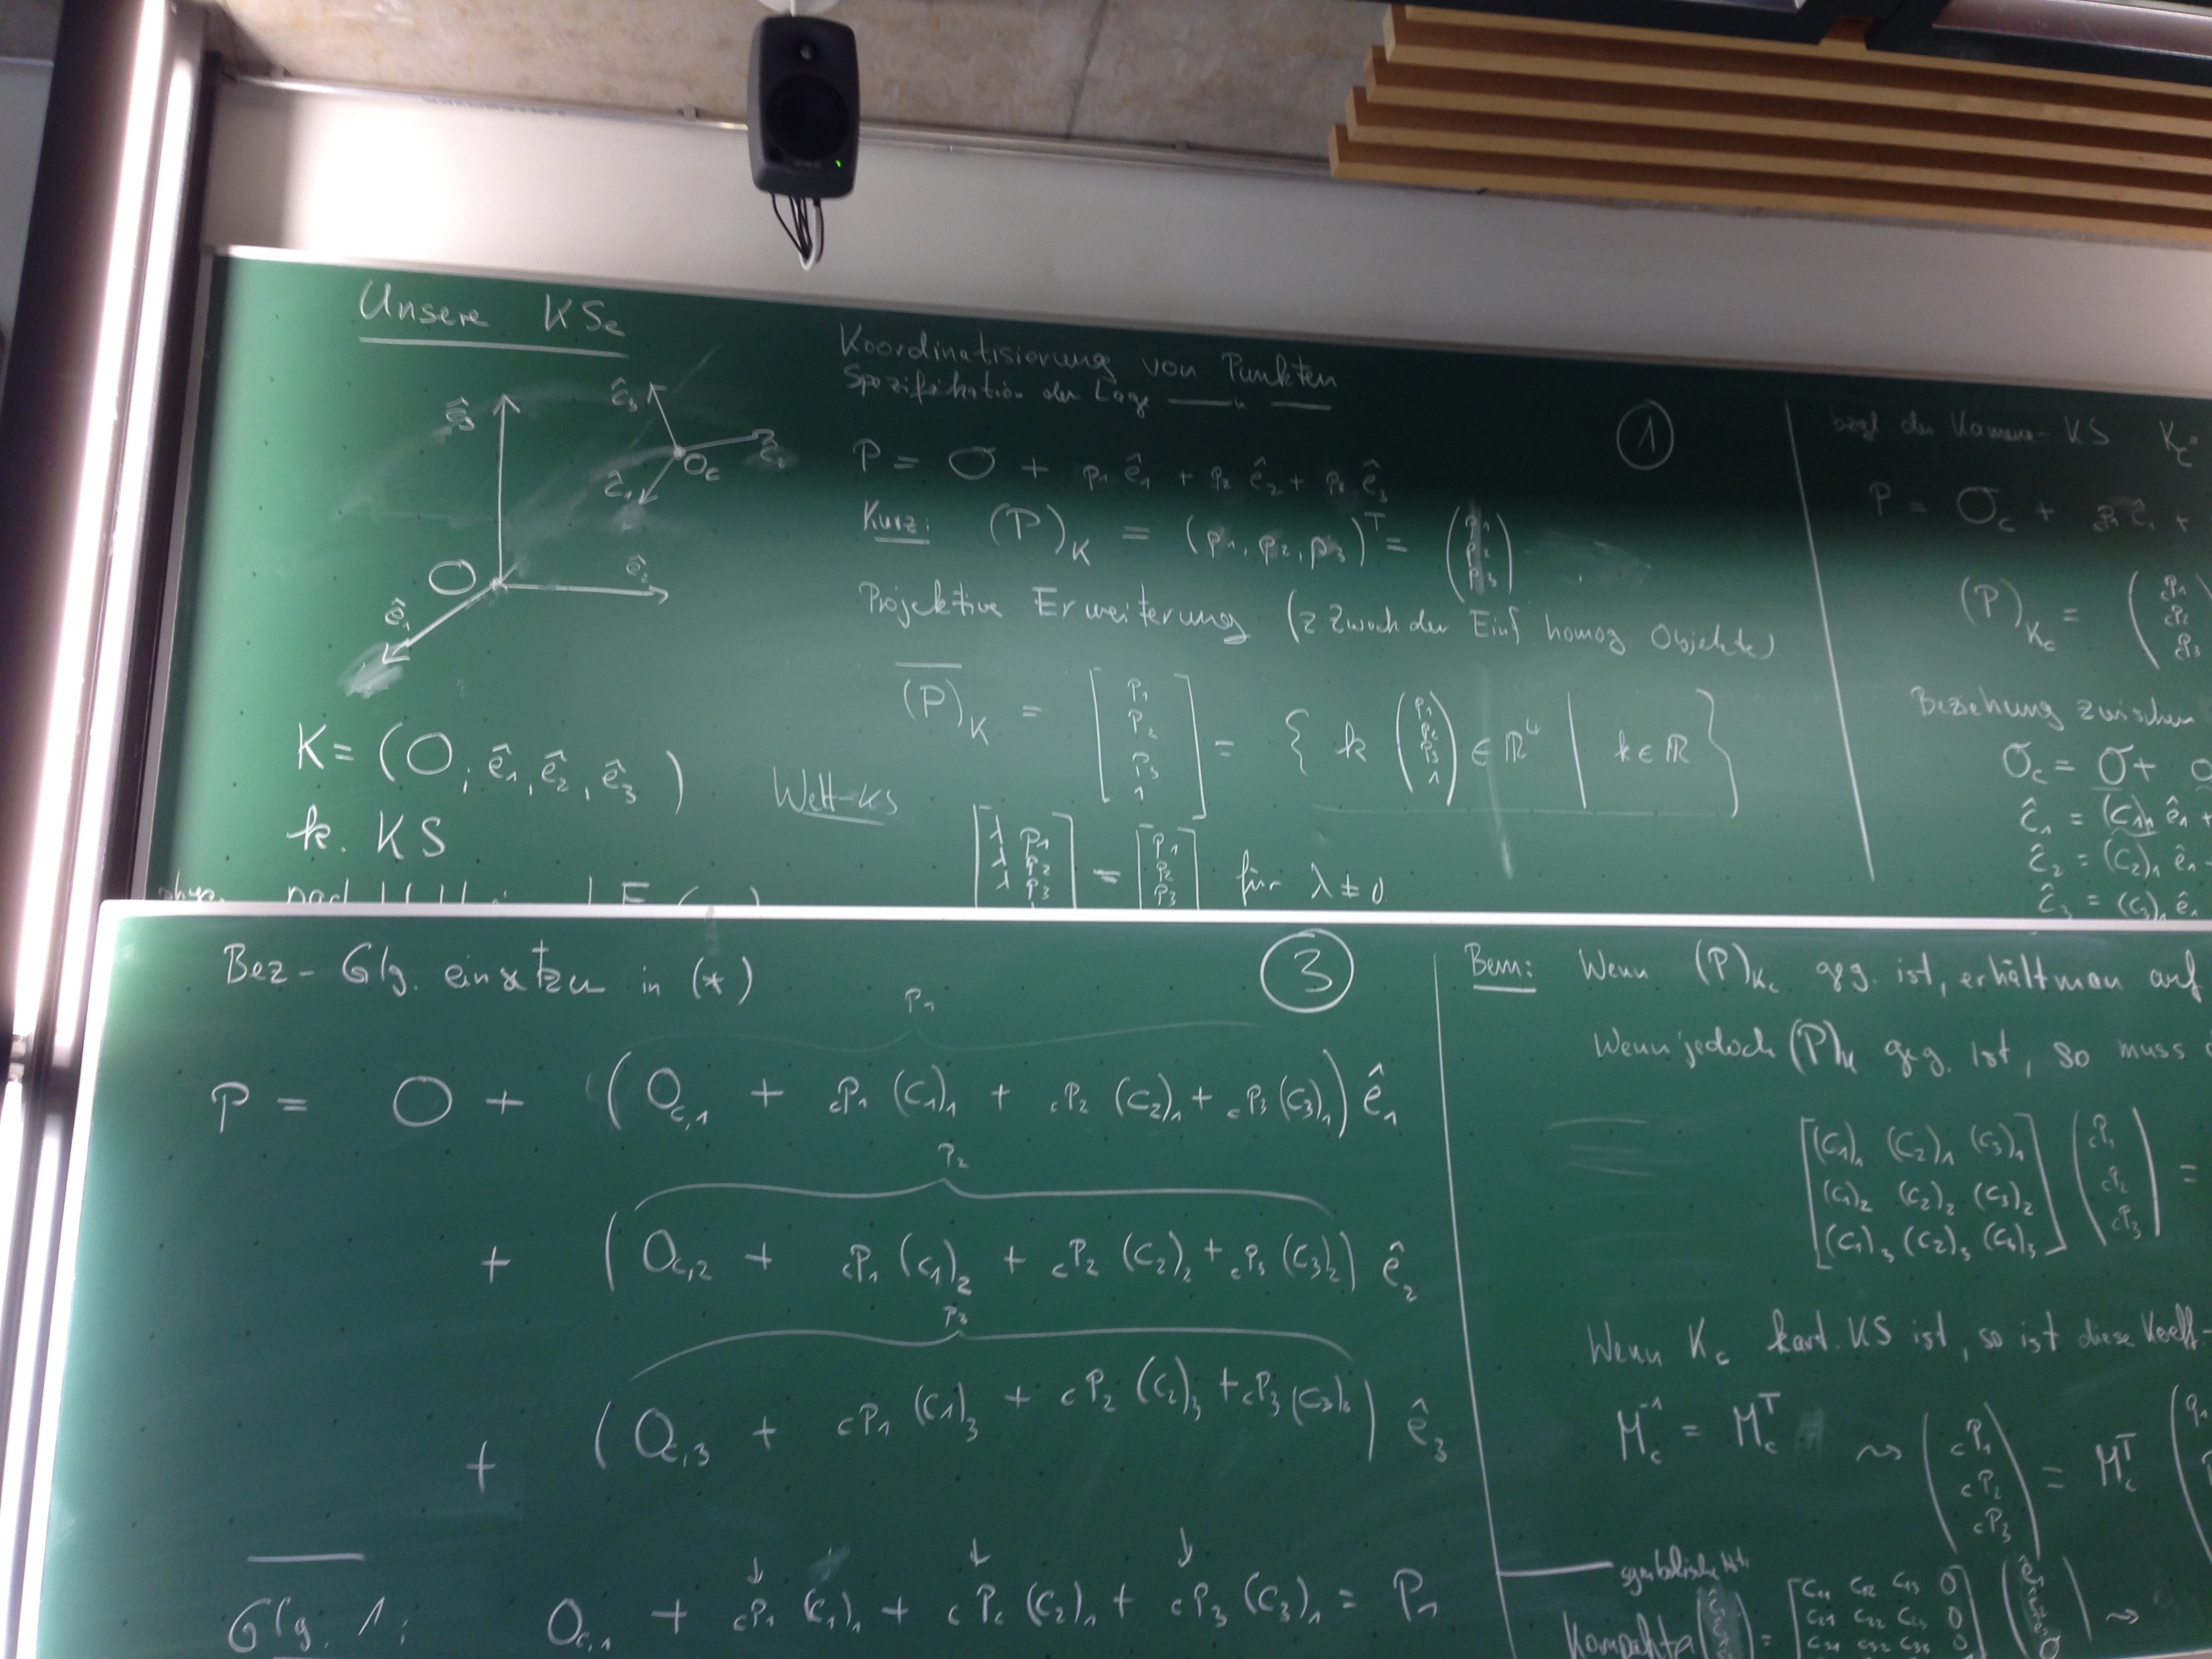 Unsere KSe
ê₃
ê₂
ê₁
O
ĉ₃
ĉ₁
O_c
K = (O; ê₁, ê₂, ê₃)
k. KS
Welt-KS
Koordinatisierung von Punkten
Spezifikation der Lage — " —
①
P = O + p₁ ê₁ + p₂ ê₂ + p₃ ê₃
Kurz: (P)_K = (p₁, p₂, p₃)^T = (p₁ p₂ p₃)
Projektive Erweiterung (z Zweck der Einf homog Objekte)
(P)_K = [p₁ p₂ p₃ 1] = { k (p₁ p₂ p₃ 1) ∈ ℝ⁴ | k ∈ ℝ }
[λ p₁ λ p₂ λ p₃] = [p₁ p₂ p₃] für λ ≠ 0
bzgl des Kamera-KS K_c =
P = O_c + cP₁ ĉ₁ +
(P)_Kc = (cP₁ cP₂ cP₃
Beziehung zwischen
O_c = O +
ĉ₁ = (C₁)₁ ê₁ +
ĉ₂ = (C₂)₁ ê₁
ĉ₃ = (C₃)₁ ê₁
Bez-Glg. einsetzen in (*)
③
P₁
P = O + (O_c,1 + cP₁ (C₁)₁ + cP₂ (C₂)₁ + cP₃ (C₃)₁) ê₁
P₂
+ (O_c,2 + cP₁ (C₁)₂ + cP₂ (C₂)₂ + cP₃ (C₃)₂) ê₂
P₃
+ (O_c,3 + cP₁ (C₁)₃ + cP₂ (C₂)₃ + cP₃ (C₃)₃) ê₃
↓ ↓ ↓
Glg. 1: O_c,1 + cP₁ (C₁)₁ + cP_c (C₂)₁ + cP₃ (C₃)₁ = P₁
Bem: Wenn (P)_Kc geg. ist, erhält man auf
Wenn jedoch (P)_K geg. ist, so muss
[(C₁)₁ (C₂)₁ (C₃)₁ (cP₁
(C₁)₂ (C₂)₂ (C₃)₂ cP₂ =
(C₁)₃ (C₂)₃ (C₃)₃] cP₃)
Wenn K_c kart. KS ist, so ist diese Koeff-
M_c^-1 = M_c^T ⇝ (cP₁ cP₂ cP₃) = M_c^T
symbolische
[C₁₁ C₁₂ C₁₃ 0
C₂₁ C₂₂ C₂₃ 0
C₃₁ C₃₂ C₃₃ 0